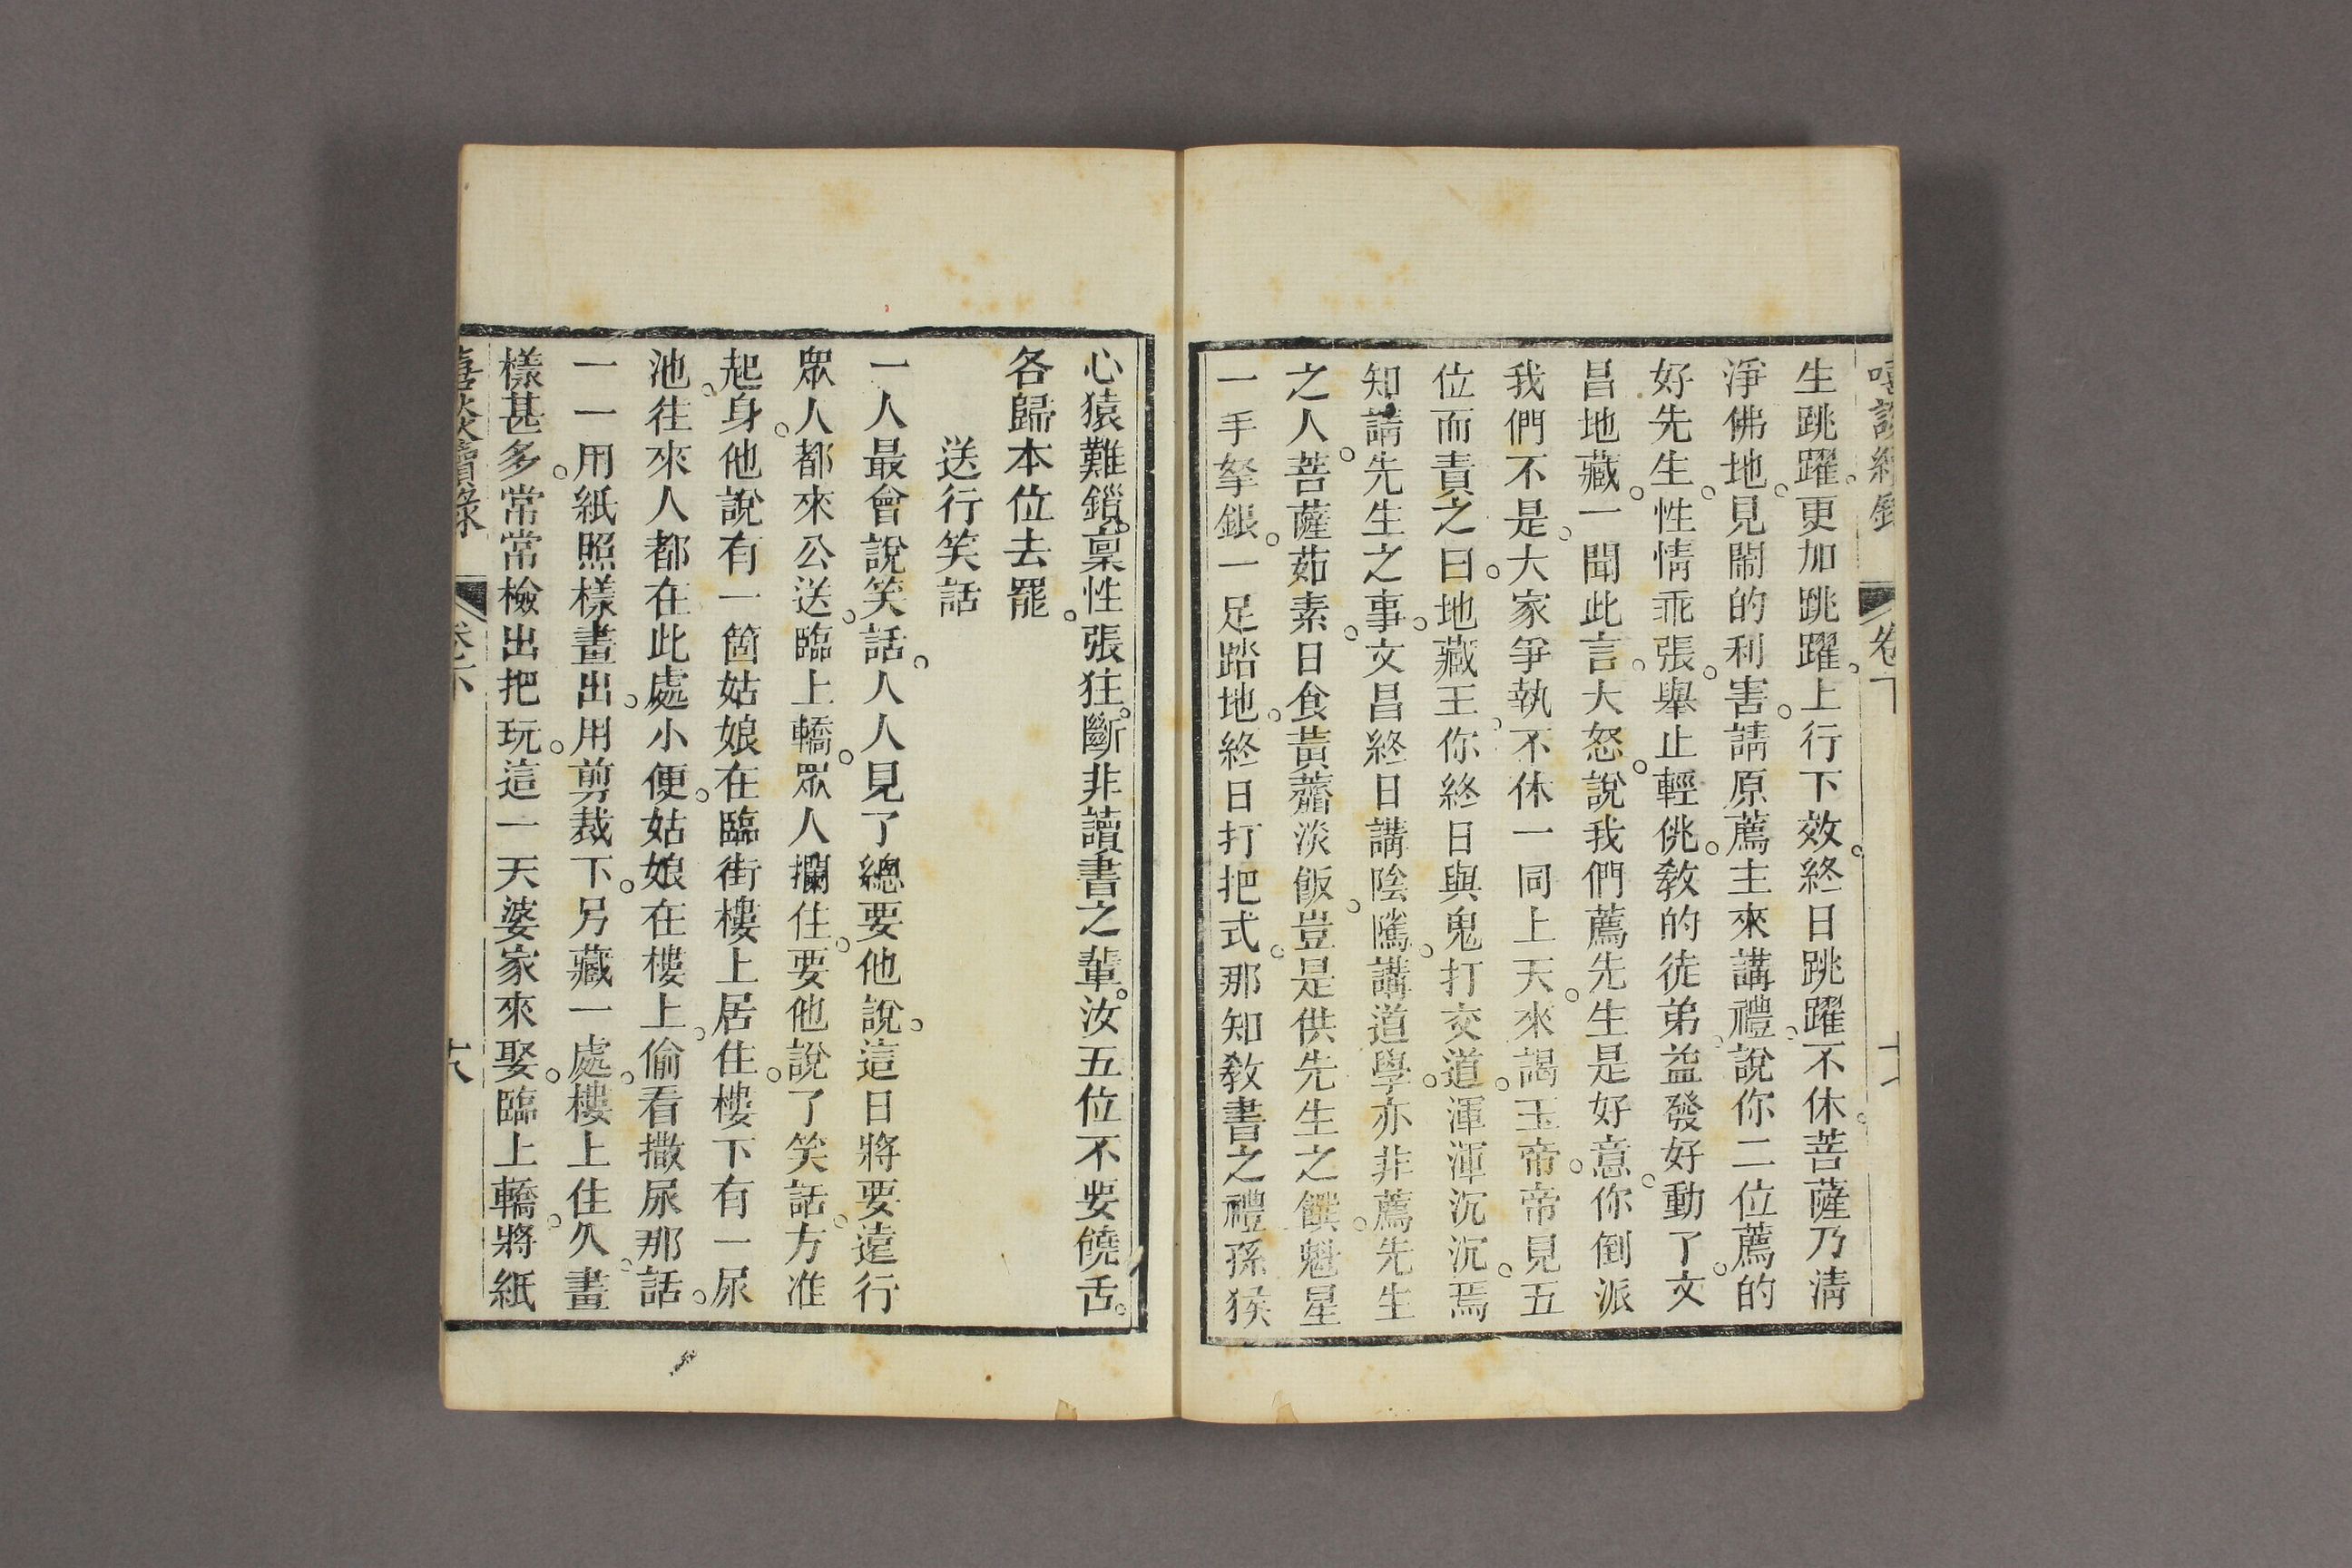 生跳躍。更加跳躍。上行下效。終日跳躍不休。菩薩乃淸
淨佛地。見閙的利害。請原薦主來講禮。說你二位薦的
好先生。性情乖張。舉止輕佻。敎的徒弟益發好動了。文
昌地藏。一聞此言。大怒。說我們薦先生是好意。你倒派
我們不是。大家爭執不休一同上天。來謁玉帝。帝見五
位而責之曰。地藏王。你終日與鬼打交道。渾渾沉沉。焉
知請先生之事。文昌終日講陰隲。講道學。亦非薦先生
之人。菩薩茹素。日食黃虀淡飯。豈是供先生之饌。魁星
一手拏銀。一足踏地。終日打把式。那知敎書之禮孫猴
心猿難鎖。稟性張狂。斷非讀書之輩。汝五位不要饒舌。
各歸本位去罷。
送行笑話
一人最會說笑話。人人見了總要他說。這日將要遠行
眾人都來公送。臨上轎。眾人攔住。要他說了笑話。方准
起身。他說有一箇姑娘在臨街樓上居住。樓下有一尿
池。往來人都在此處小便。姑娘在樓上。偷看撒尿那話。
一一用紙照樣畫出。用剪裁下。另藏一處。樓上住久。畫
樣甚多。常常檢出把玩。這一天婆家來娶。臨上轎。將紙
卷下